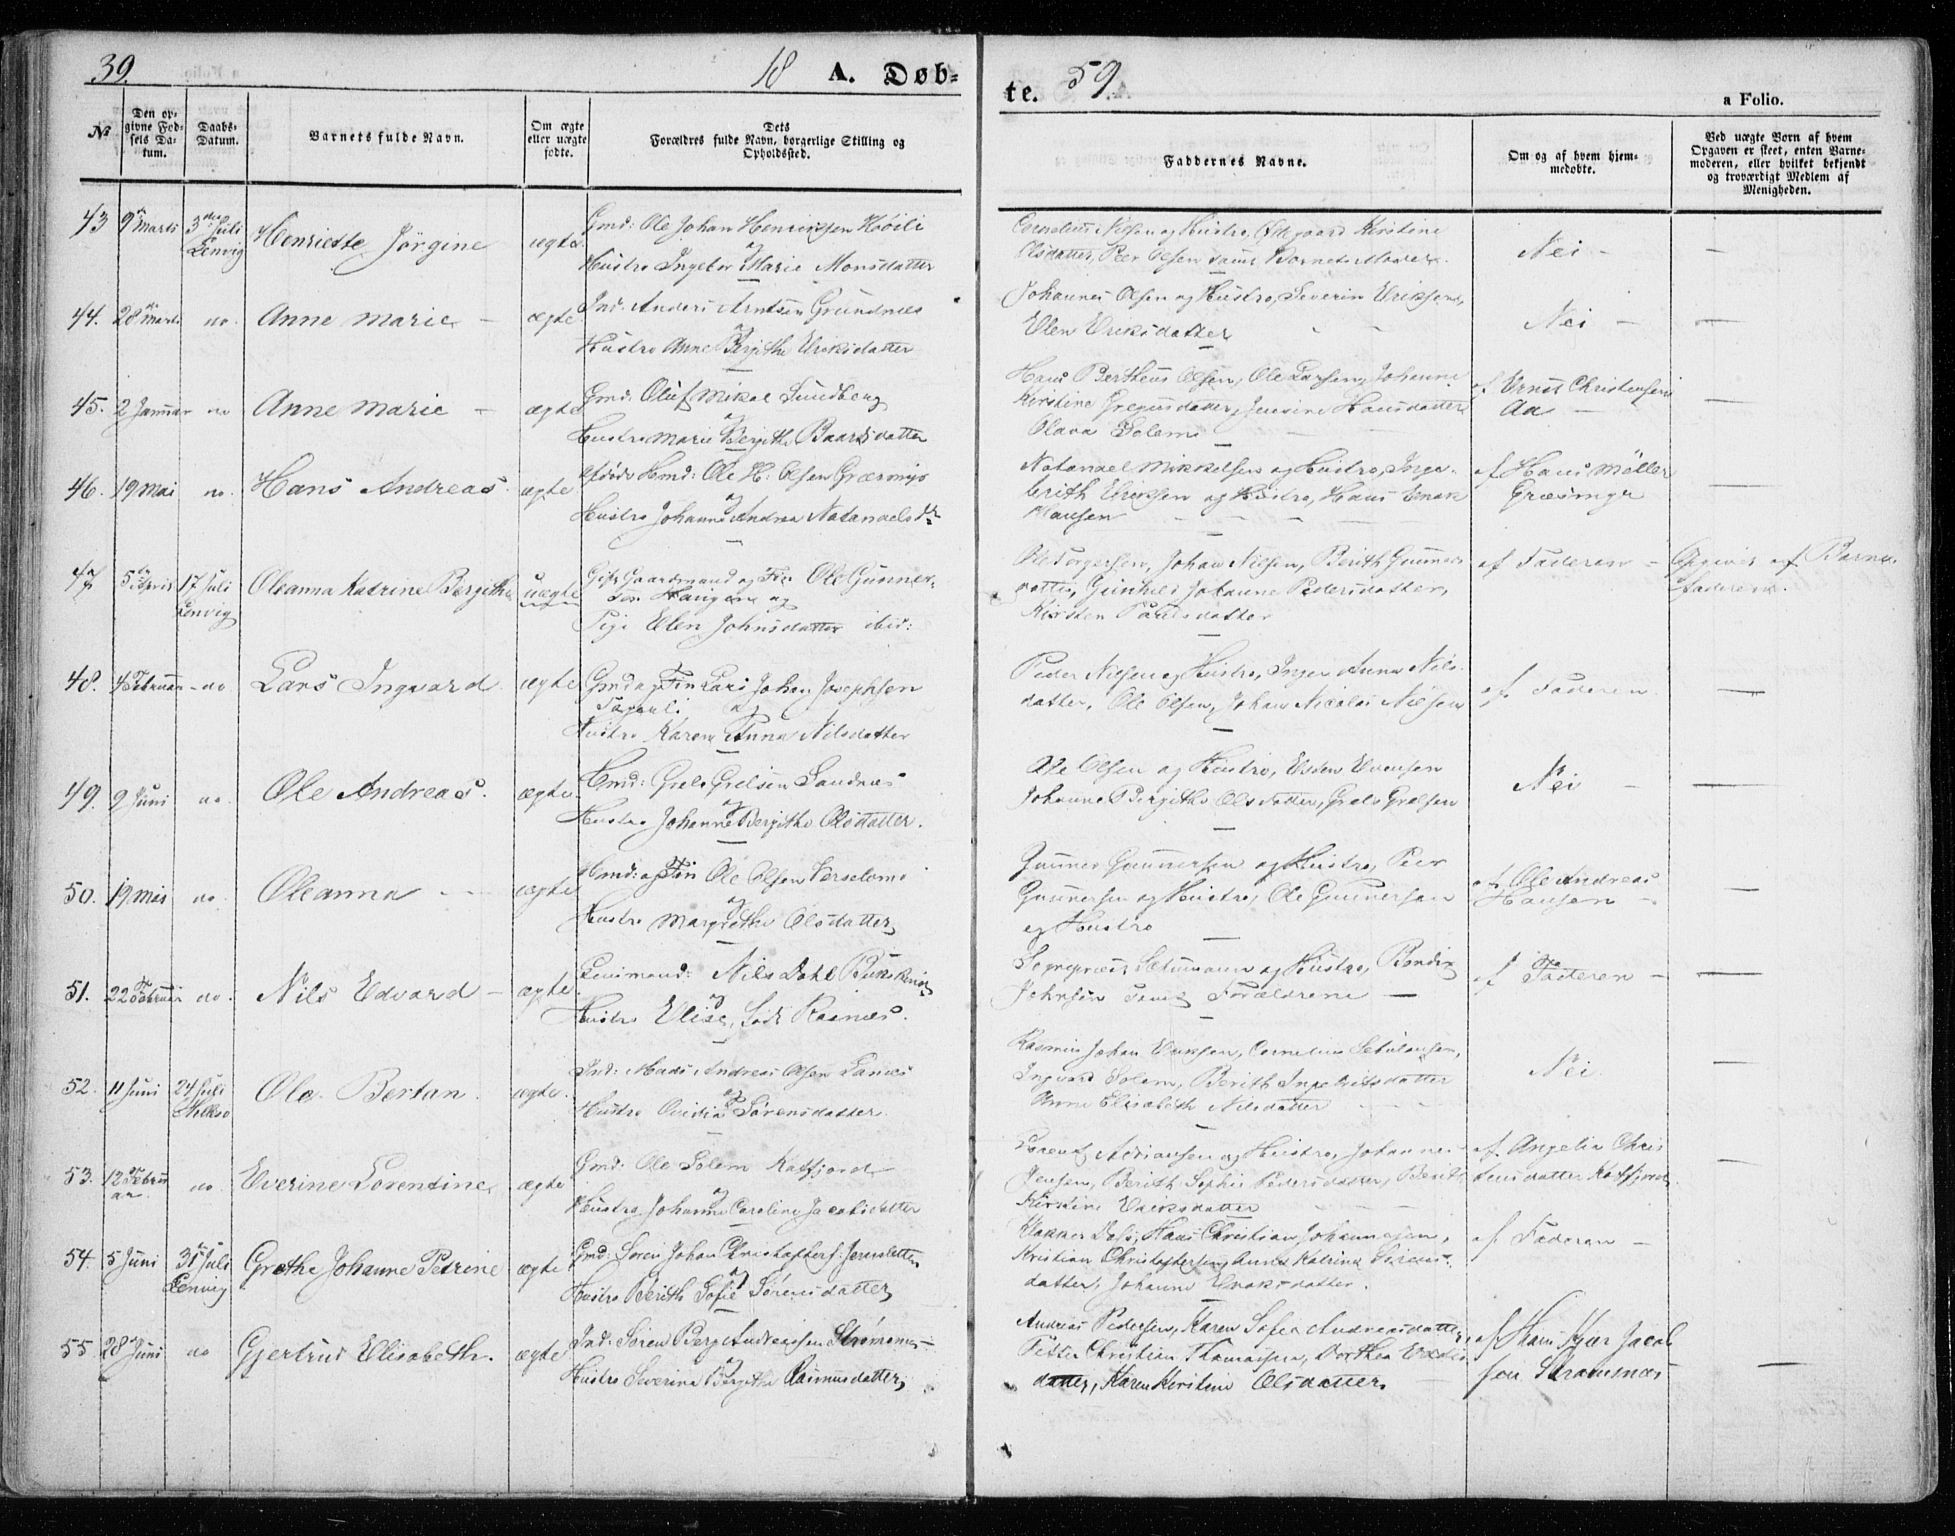 39.
18 A. Døb-
te. 59.
a Folio.
No
Den op-
givne Fød-
sels Da-
tum.
Daabs-
Datum.
Barnets fulde Navn.
Om ægte
eller uægte
fødte.
Dets
Forældres fulde Navn, borgerlige Stilling og
Opholdssted.
Faddernes Navne.
Om og af hvem hjem-
medøbte.
Ved uægte Børn af hvem
Opgaven er skeet, enten Barne-
moderen, eller hvilket bekjendt
og troværdigt Medlem af
Menigheden.
43 9de Marts 3die Juli Henriette Jörgine ægte Gmd: Ole Johan Henriksen
Lenvig og
Hustro Ingebor Marie Monsdatter
Cornelius Nilsen og Hustro, Kirstine
Olsdatter, Peer Olsen samt Barnets Moder.
Nei -
44. 28de Marts do. Anne Marie - ægte Ind: Anders Arntsen Grundnæs
og
Hustro Anne Bergithe Eriksdatter
Johannes Olsen og Hustro, Severin Eriksen,
Elen Eriksdatter
Nei -
45. 2 Januar do Anne Marie - ægte Gmd: Oluf Mikal Sundberg
og
Hustro Marie Bergithe Baardsdatter
Hans Bertheus Olsen, Ole Larsen, Johanna
Kirstine Gregusdatter, Hansdatter
Olava Solem
af Ernst Christensen
Aa -
46. 19 Mai do. Hans Andreas. ægte afdöde Hmd: Ole H: Olsen Græsmyr
og
Hustro Johanna Andrea Natanaelsdtr
Natanael Mikkelsen og Hustro, Inge-
brith Eriksen og Hustro, Hans Enok
Hansen
af Hans Möller
Græsmyr
47 5te April 17 Juli Oleanna Katrine Bergithe uægte Gift Gaardmand og Fin Ole Gunner-
Lenvig sen Haugen og
Pige Elen Johnsdatter ibid:
Ole Torgersen, Johan Nilsen, Berith Gunners
datter, Gunhild Johanne Pedersdatter,
Kirsten Paulsdatter
af Faderen - Opgivet af Barne-
faderen.
48. 4 Februar - do Lars Ingvard ægte Gmd og Fin Lars Johan Josephsen
og
Hustro Karen Anna Nilsdatter
Peder Nilsen og Hustro, Inger Anna Nils-
datter, Ole Olsen, Johan Nicolai Nilsen
af Faderen
49. 9 Juni do. Ole Andreas. ægte Hmd: Grels Grelsen Sandnæs
og
Hustro Johanne Bergithe Olsdatter.
Ole Olsen og Hustro, Esten Evensen
Johanna Bergithe Olsdatter, Grels Grelsen
Nei -
50. 19 Mai do. Oleanna - ægte Hmd: og Fin Ole Olsen
og
Hustro Margrethe Olsdatter
Gunner Gunnersen og Hustro, Peer
Gunnersen og Hustro, Ole Gunnersen
og Hustro
af Ole Andreas
Hansen -
51. 22 Februar do. Nils Edvard - ægte Nils Dahl
og
Hustro Elise, född Rasnæs.
og Hustro,
Johnsen samt Forældrene -
af Faderen -
52. 11 Juni 24 Juli Ole Bertan. ægte. Ind: Mads Andreas Olsen Lanæs
og
Hustro Ovidia Sørensdatter
Rasmus Johan Eriksen, Cornelius
Ingvard Solem, Berith Ingebritsdatter
Anne Elisabeth Nilsdatter
Nei.
53. 12 Febru
ar do Everine Lorentine ægte Gmd: Ole Solem Katfjord
og
Hustro Johanna Caroline Jacobsdatter
Adriansen og Hustro, Johannes
Jensen, Berith Sophie Pedersdatter, Berith
Kirstine Eriksdatter
af Angelia Chris
tensdatter Katfjord.
54. 5 Juni 31 Juli Grethe Johanne Petrine ægte Gmd: Søren Johan Christophers: Jernsletten
Lenvig og
Hustro Berith Sofie Sørensdatter
Hans Christian Johannesen,
Kristian Christophersen, Anna Katrina
datter, Johanna Enoksdatter.
af Faderen -
55 28 Juni do Gjertrud Elisabeth. ægte Ind: Søren Berg Andreassen Strømsnes -
og
Hustro Severina Bergithe Rasmusdatter
Andreas Pedersen, Karen Sofia Andreasdatter
Petter Christian Thomassen, Dorthea
datter, Karen Kirstine Olsdatter
af Hans Kjer Jacob
sen Strømsnæs